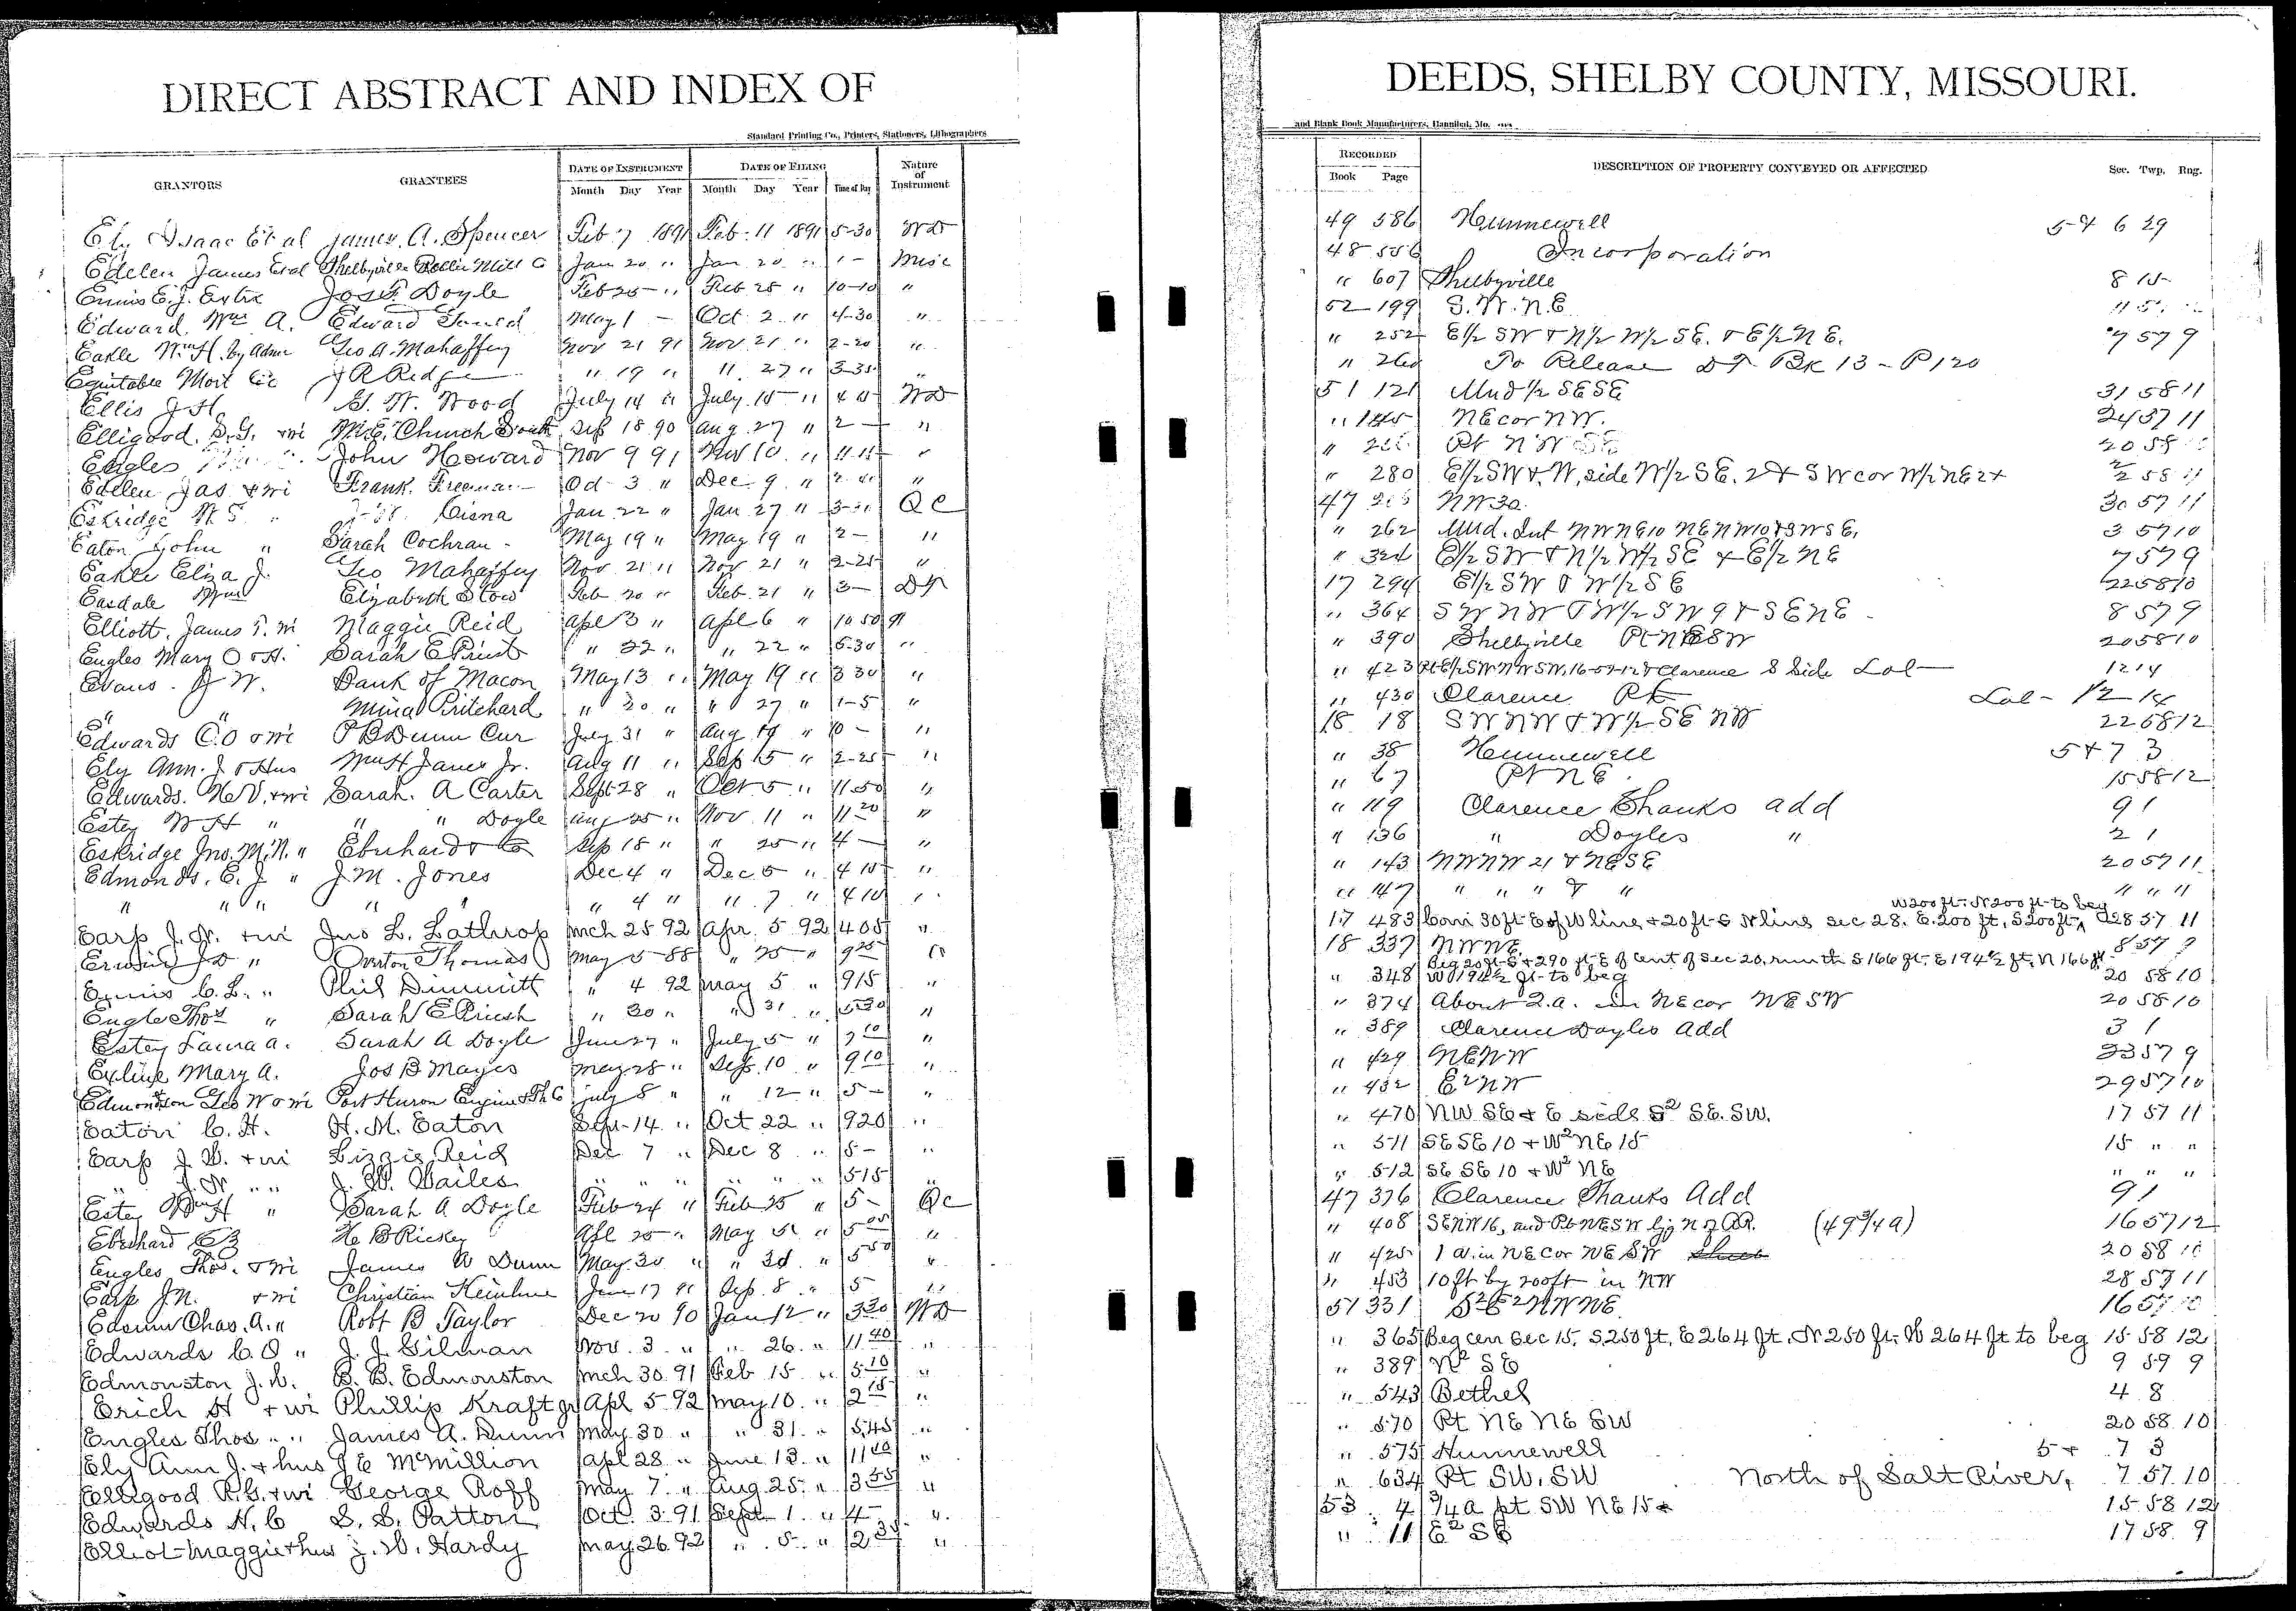 DIRECT ABSTRACT AND INDEX OF
Standard Printing Co., Printers, Stationers, Lithographers
GRANTORS GRANTEES DATE OF INSTRUMENT DATE OF FILING Nature of Instrument
Month Day Year Month Day Year Time of Day
Ely Isaac Et al James. A. Spencer Feb 7 1891 Feb. 11 1891 5-30 WD
Edelen James Et al Shelbyville Roller Mill Co Jan 20 " Jan 20 " 1 - Misc
Ennis E. J. Extrx Jos F. Doyle Feb 25 " Feb 25 " 10-10 "
Edward. Wm A. Edward May 1 - Oct 2 " 4-30 "
Eakle Wm H. by Admr Geo A. Mahaffey Nov 21 91 Nov 21 " 2-20 "
Equitable Mort Co J R Ridge " 19 " " 27 " 3-35 "
Ellis J H. G. W. Wood July 14 " July 15 " 4 45 WD
Elligood. R. G. + wi M. E. Church South Sep 18 90 Aug 27 " 2 - "
Engles John Howard Nov 9 91 Nov 10 " 11-15 "
Edelen Jas + wi Frank. Freeman Oct 3 " Dec 9 " "
Eskridge W. S. " Cisna Jan 22 " Jan 27 " QC
Eaton John " Sarah Cochran - May 19 " May 19 " 2 - "
Eakle Eliza J. Geo Mahaffey Nov 21 " Nov 21 " 2-25 "
Easdale Wm Elizabeth Stow Feb 20 " Feb. 21 " 3 - DT
Elliott. James T. wi Maggie Reid Apl 3 " Apl 6 " 10 50 "
Engles Mary O + H. Sarah E Priest " 22 " " 22 " 5-30 "
Evans. J W. Bank of Macon May 13 " May 19 " 3 30 "
" " Mina Pritchard " 20 " " 27 " 1-5 "
Edwards C. O + wi P B Dunn Cur July 31 " Aug 19 " 10 - "
Ely Ann. J + Hus Wm H Janes Jr. Aug 11 " Sep 15 " 2-25 "
Edwards. N. V. + wi Sarah. A Carter Sept 28 " Oct 5 " 11 50 "
Estey W H " " " Doyle Aug 25 " Nov. 11 " 11 20 "
Eskridge Jno. M. N. " Eberhard + Co Sep 18 " " 25 " 4 - "
Edmonds. E. J " J. M. Jones Dec 4 " Dec 5 " 4 10 "
" " " " " " 4 " " 7 " 4 10 "
Earp J. N. + wi Jno L. Lathrop Mch 25 92 Apr. 5 92 4 05 "
" Overton Thomas May 5 88 " 25 " 9 25 "
Ennis C. L. " Phil Dimmitt " 4 92 May 5 " 9 15 "
Engle Thos " Sarah E Priest " 30 " " 31 " 5 30 "
Estey Laura A. Sarah A Doyle Jun 27 " July 5 " 2 10 "
Exline Mary A. Jos B Mayes May 28 " Sep. 10 " 9 10 "
Edmonston Geo W + wi Port Huron Engine & Th Co July 8 " " 12 " 5 - "
Eaton C. H. H. M. Eaton Sept. 14 " Oct 22 " 9 20 "
Earp J. N. + wi Lizzie Reid Dec 7 " Dec 8 " 5 - "
" J. N. " " J. W. Bailes " " " " " " 5 15 "
Estey Wm H " Sarah A Doyle Feb 24 " Feb 25 " 5 - QC
Eberhard E B H B Rickey Apl 25 " May 5 " 5 05 "
Engles Thos. + wi James A Dunn May 30 " " 31 " 5 50 "
Earp J N. + wi Christian June 17 91 Sep. 8 " 5 "
Chas. A. " Robt B Taylor Dec 20 90 Jan 12 " 3 30 WD
Edwards C. O " J. J. Gilman Nov. 3 " " 26 " 11 40 "
Edmonston J. W. B. B. Edmonston Mch 30 91 Feb 15 " 5 10 "
Erich H + wi Phillip Kraft Jr Apl 5 92 May 10. " 2 15 "
Engles Thos " " James A. Dunn May 30 " " 31. " 5 45 "
Ely Ann J. + hus J E McMillion Apl 28 " June 13. " 11 40 "
Elligood R. G. + wi George Roff May 7. " Aug. 25. " 3 55 "
Edwards N. C S. S. Patton Oct. 3 91 Sept. 1. " 4 - "
Elliot Maggie + hus J. W. Hardy May 26 92 " 5 " 2 35 "
DEEDS, SHELBY COUNTY, MISSOURI.
and Blank Book Manufacturers, Hannibal, Mo.
RECORDED DESCRIPTION OF PROPERTY CONVEYED OR AFFECTED Sec. Twp. Rng.
Book Page
49 586 Hunnewell 5-+ 6 29
48 556 Incorporation
" 607 Shelbyville 8 15
52 199 S. W. N. E
" 252 E1/2 SW + N1/2 W1/2 SE. + E1/2 N E. 7 57 9
" 260 To Release DT Bk 13 - P 120
51 121 Und 1/2 SESE 31 58 11
" 145 NE cor NW. 24 57 11
" Pt NW SE 20 58
" 280 E1/2 SW + W. side W1/2 SE. 2 + SW cor W1/2 NE 2+ 2 58 11
47 NW 30. 30 57 11
" 262 Und. Int NWNE 10 NENW 10 + SWSE, 3 57 10
" 324 E1/2 SW + N1/2 W1/2 SE + E1/2 NE 7 57 9
17 294 E1/2 SW + W1/2 SE 22 58 10
" 364 SWNW + W1/2 SW 9 + SENE - 8 57 9
" 390 Shelbyville Pt NESW 20 58 10
" 423 Pt E1/2 SW NW SW, 16-57-12 + Clarence S Side Lot - 12 14
" 430 Clarence Pt Lot - 1/2 - 14
18 18 SWNW + W1/2 SE NW 22 58 12
" 38 Hunnewell 5 + 7 3
" 67 Pt NE. 15 58 12
" 119 Clarence Shanks add 9 1
" 136 " Doyles " 2 1
" 143 NWNW 21 + NESE 20 57 11
" 147 " " " + " " " "
W 200 ft. N 200 ft to beg
17 483 Com 30 ft E of W line + 20 ft S N line sec 28. E. 200 ft, S 200 ft, 28 57 11
18 337 NWNE 8 57 9
Beg 20 ft S + 290 ft E of cent of Sec 20, runnth S 166 ft. E 194 1/2 ft, N 166 ft
" 348 W 194 1/2 ft to beg 20 58 10
" 374 About 2. a. in NE cor NESW 20 58 10
" 389 Clarence Doyles Add 3 1
" 429 NENW 33 57 9
" 432 E2 NW 29 57 10
" 470 NW SE + E side S2 SE. SW. 17 57 11
" 511 SESE 10 + W2 NE 15 15 " "
" 512 SE SE 10 + W2 NE " " "
47 376 Clarence Shanks Add 9 1
" 408 SENW 16, and Pt NESW lyg N of RR. (49 3/4 a) 16 57 12
" 425 1 a. in NE cor NESW 20 58 10
" 453 10 ft by 200 ft in NW 28 57 11
51 331 S2 E2 NWNE 16 57 10
" 365 Beg cen Sec 15. S. 250 ft, E 264 ft. N 250 ft. W 264 ft to beg 15 58 12
" 389 N2 SE 9 59 9
" 543 Bethel 4 8
" 570 Pt NE NE SW 20 58 10
" 575 Hunnewell 5 + 7 3
" 634 Pt SW. SW North of Salt River, 7 57. 10
53 4 3/4 a pt SW NE 15 15 58 12
" 11 E2 SE 17 58. 9